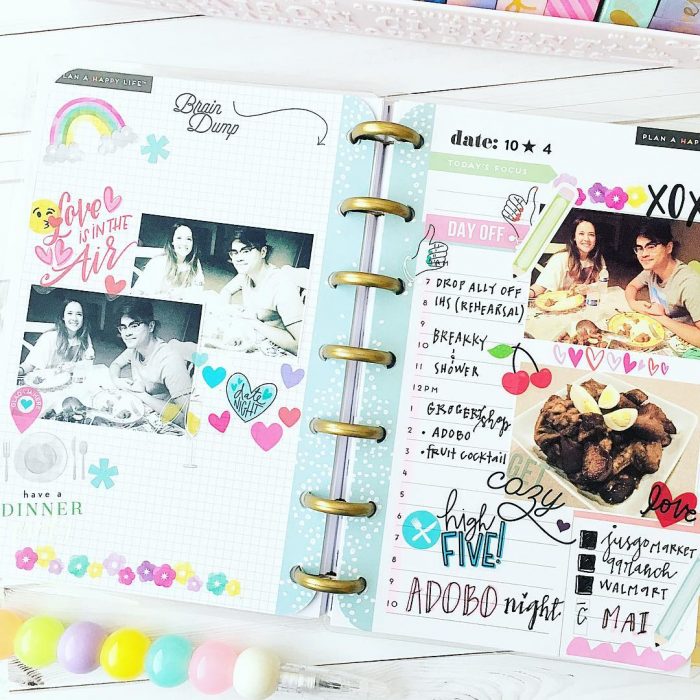 PLAN A HAPPY LIFE™
Brain
Dump
Love
IS IN THE
Air
date
NIGHT
have a
DINNER
date: 10 ★ 4
PLAN A HA
TODAY'S FOCUS
XOX
DAY OFF
7 DROP ALLY OFF
8 IHS (REHEARSAL)
9
BREAKKY
10 &
11 SHOWER
12PM
1 GROCERY/shop
2 • ADOBO
3 • FRUIT COCKTAIL
4
GET
cozy
5
6 high
7 FIVE!
8
9 ADOBO night
10
love
jusgo MARKET
99 ranch
WALMART
MAI